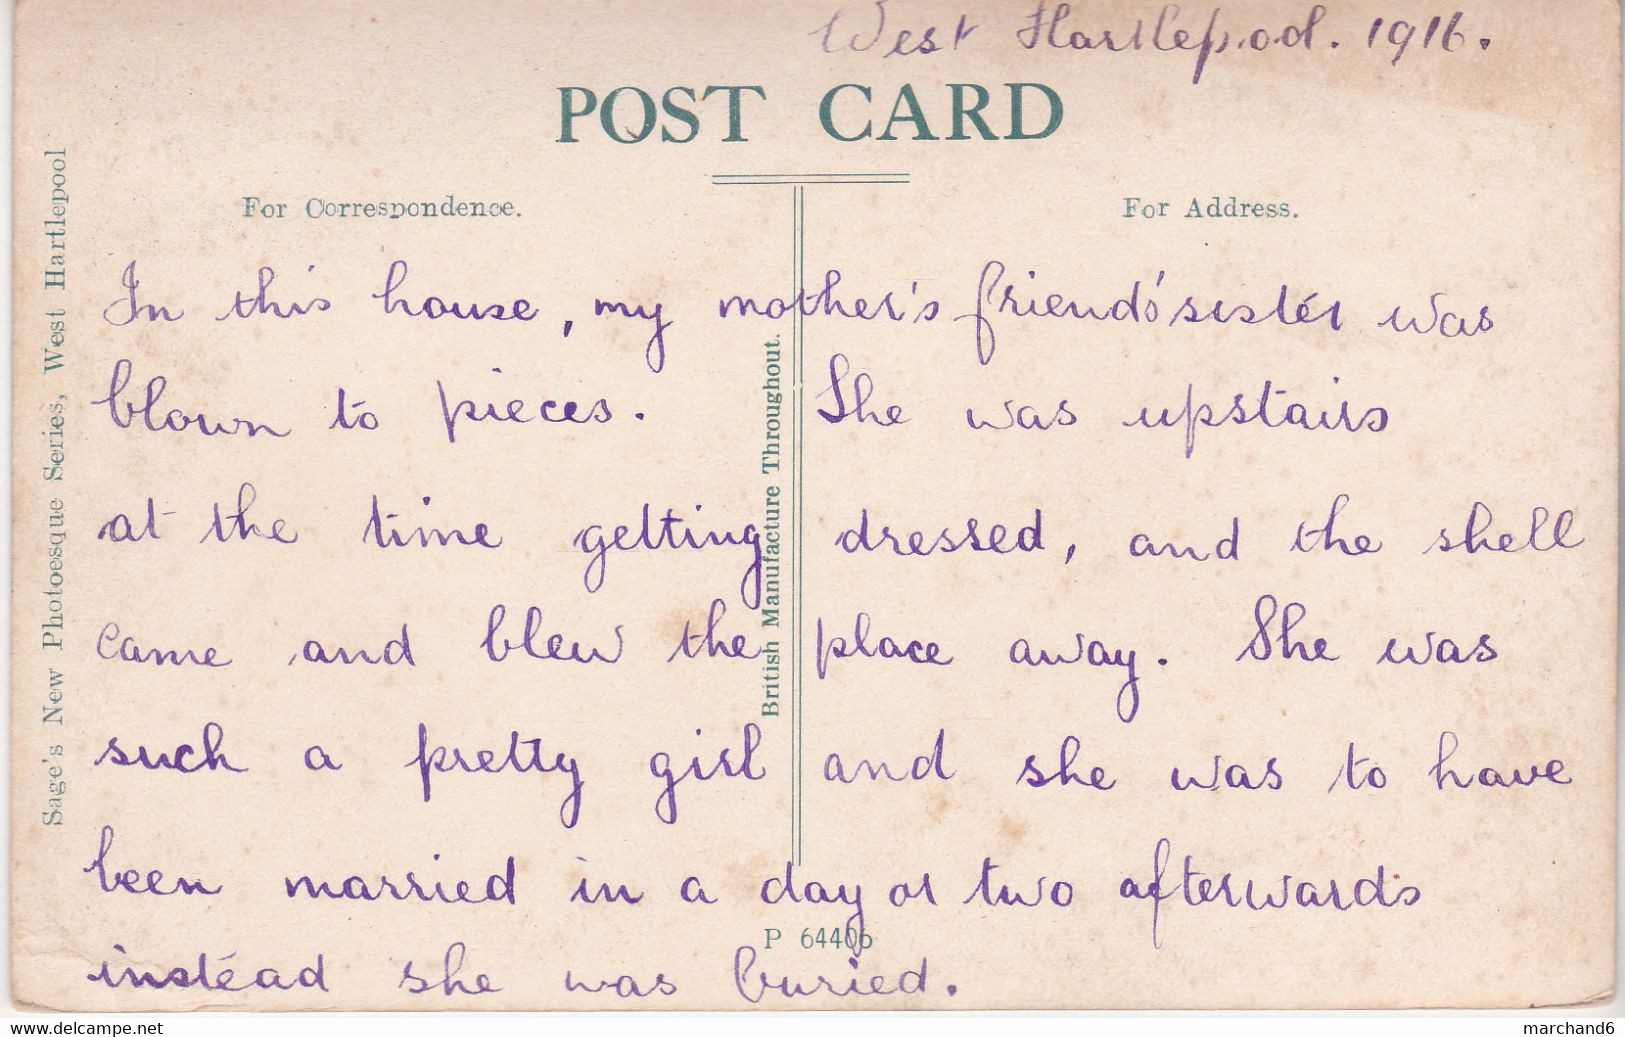 West Hartlepool. 1916.
POST CARD
For Correspondence.
For Address.
In this house, my mother's friend's sister was
blown to pieces. She was upstairs
at the time getting dressed, and the shell
came and blew the place away. She was
such a pretty girl and she was to have
been married in a day or two afterwards
instead she was buried.
Sage's New Photoesque Series, West Hartlepool
British Manufacture Throughout.
P 64406
delcampe.net
marchand6